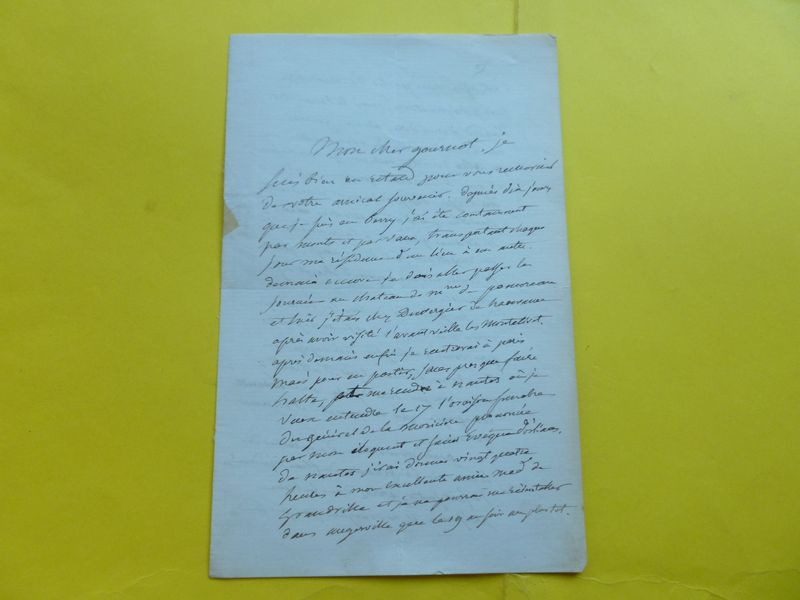 Mon cher gournot, je
suis bien en retard pour vous remercier
de votre amical souvenir. depuis dix jours
que je suis en Berry j'ai été constamment
par monts et par vaux, transportant chaque
jour ma résidence d'un lieu à un autre.
demain encore je dois aller passer la
journée au chateau de mme de
et hier j'étais chez Duvergier de hauranne
après avoir visité l'avant veille les Montalivet.
après demain enfin je rentrerai à paris
mais pour en partir, sans presque faire
halte, me rendre à nantes où je
veux entendre le 17 l'oraison funèbre
du général de la moricière prononcée
par mon éloquent et saint Evêque d'orléans.
de nantes j'irai donner vingt quatre
heures à mon excellente amie mad. de
Grandville et je ne pourrai me réinstaller
dans augerville que le 19 au soir au plustot.